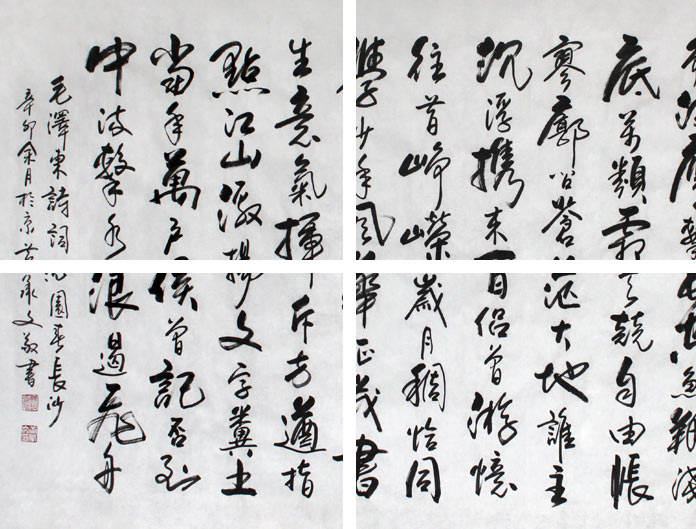 底萬類霜天競自由悵
寥廓問蒼茫大地誰主
沉浮攜來百侶曾游憶
往昔崢嶸歲月稠恰同
少年風華正茂書
生意氣揮斥方遒指
點江山激揚文字糞土
當年萬戶侯曾記否到
中流擊水浪遏飛舟
毛澤東詩詞沁園春長沙
辛卯余月於京文書